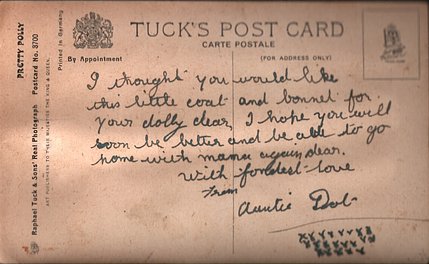 TUCK'S POST CARD
CARTE POSTALE
By Appointment
(FOR ADDRESS ONLY)
PRETTY POLLY
Raphael Tuck & Sons' Real Photograph Postcard No. 3700
ART PUBLISHERS TO THEIR MAJESTIES THE KING & QUEEN.
Printed in Germany
I thought you would like
this little coat and bonnet for
your dolly dear, I hope you will
soon be better and be able to go
home with mamu again dear.
With fondest love
from
Auntie Dol.
XXXXXXXX
XXXXXXX
XXXXXX